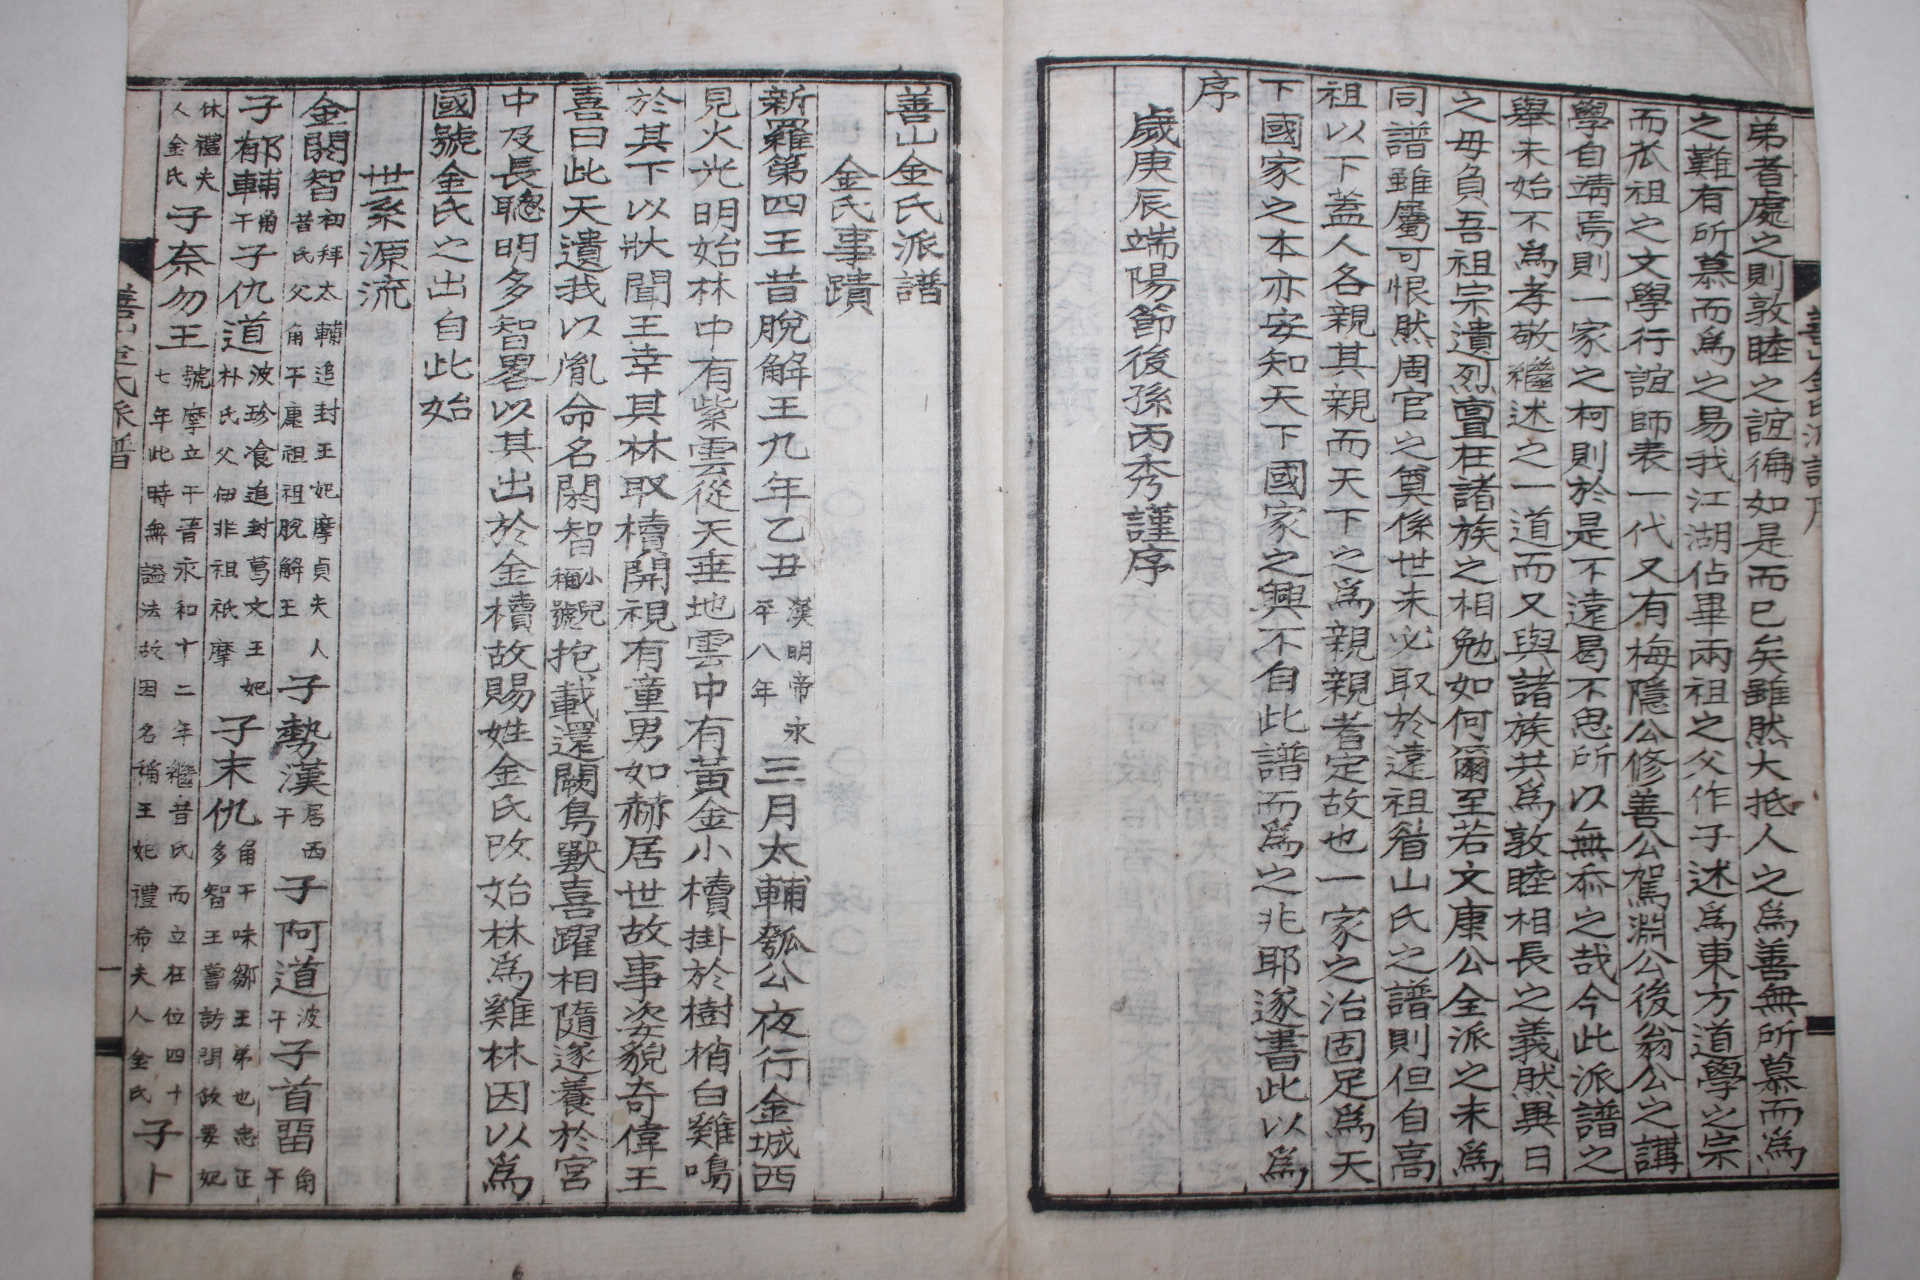 弟者處之則敦睦之誼徧如是而已矣雖然大抵人之爲善無所慕而爲
之難有所慕而爲之易我江湖佔畢兩祖之父作子述爲東方道學之宗
而苽祖之文學行誼師表一代又有梅隱公修善公駕淵公後翁公之講
學自靖焉則一家之柯則於是不遠曷不思所以無忝之哉今此派譜之
舉未始不爲孝敬繼述之一道而又與諸族共爲敦睦相長之義然異日
之毋負吾祖宗遺烈亶在諸族之相勉如何爾至若文康公全派之未爲
同譜雖屬可恨然周官之奠係世未必取於遠祖眉山氏之譜則但自高
祖以下蓋人各親其親而天下之爲親親者定故也一家之治固足爲天
下國家之本亦安知天下國家之興不自此譜而爲之兆耶遂書此以爲
序
歲庚辰端陽節後孫丙秀謹序
善山金氏派譜
金氏事蹟
新羅第四王昔脫解王九年乙丑漢明帝永平八年三月太輔瓠公夜行金城西
見火光明始林中有紫雲從天垂地雲中有黃金小櫝掛於樹梢白雞鳴
於其下以狀聞王幸其林取櫝開視有童男如赫居世故事姿貌奇偉王
喜曰此天遺我以胤命名閼智小兒稱號抱載還闕鳥獸喜躍相隨遂養於宮
中及長聰明多智畧以其出於金櫝故賜姓金氏改始林爲雞林因以爲
國號金氏之出自此始
世系源流
金閼智初拜太輔追封王妃摩貞夫人昔氏父角干康祖祖脫解王子勢漢居西干子阿道波干子首留角干
子郁輔角干子仇道波珍飡追封葛文王妃朴氏父伊非祖祇摩子末仇角干味鄒王弟也忠正多智王嘗訪問政要妃
休禮夫人金氏子奈勿王號摩立干晉永和十二年繼昔氏而立在位四十七年此時無謚法故因名稱王妃禮希夫人金氏子卜
善山金氏派譜
一